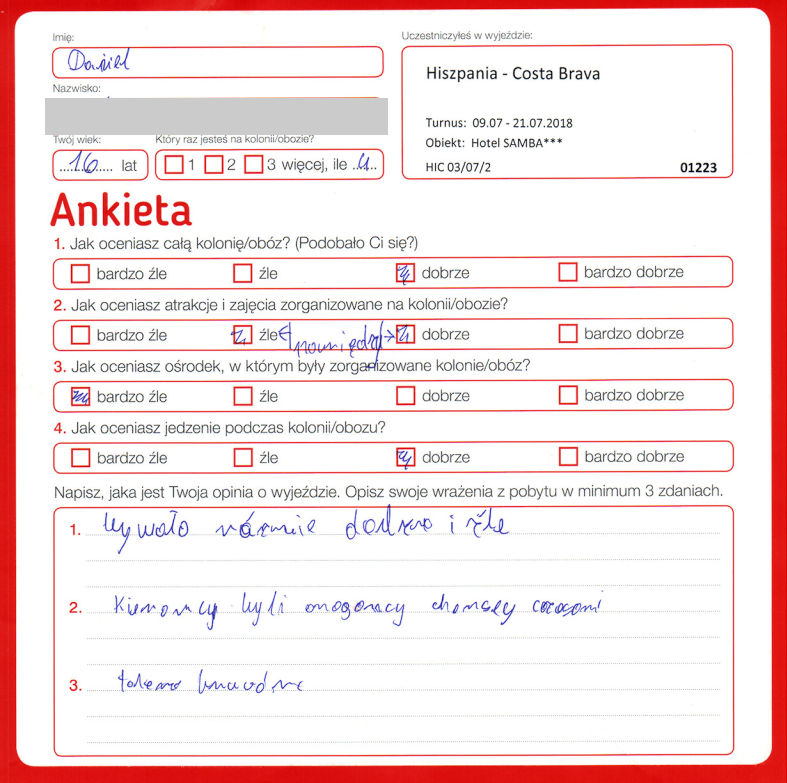 Imię:
Daniel
Uczestniczyłeś w wyjeździe:
Nazwisko:
Hiszpania - Costa Brava
Turnus: 09.07 - 21.07.2018
Obiekt: Hotel SAMBA***
HIC 03/07/2
01223
Twój wiek:
16 lat
Który raz jesteś na kolonii/obozie?
1 2 3 więcej, ile 4
Ankieta
1. Jak oceniasz całą kolonię/obóz? (Podobało Ci się?)
bardzo źle źle dobrze bardzo dobrze
2. Jak oceniasz atrakcje i zajęcia zorganizowane na kolonii/obozie?
bardzo źle źle pomiędzy dobrze bardzo dobrze
3. Jak oceniasz ośrodek, w którym były zorganizowane kolonie/obóz?
bardzo źle źle dobrze bardzo dobrze
4. Jak oceniasz jedzenie podczas kolonii/obozu?
bardzo źle źle dobrze bardzo dobrze
Napisz, jaka jest Twoja opinia o wyjeździe. Opisz swoje wrażenia z pobytu w minimum 3 zdaniach.
1. bywało róźnie dobrze i źle
2. Kierowcy byli czasami
3.